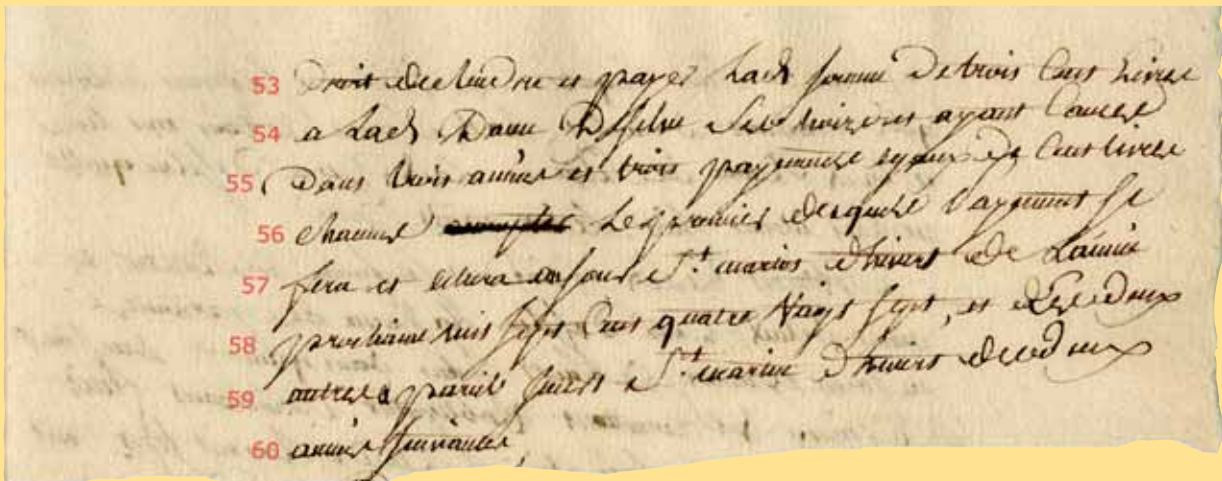 53 Droit de rendre et payer Lad. somme De trois Cent Livres
54 a Lad. Dame ses hoirs et ayant Cause
55 Dans trois années et trois payements egaux de Cent livres
56 chacune Le premier desquels payement se
57 fera et echera au jour St. martin d'hivert de L'année
58 prochaine mil sept Cent quatre Vingt sept, et Les deux
59 autres a pareil jour St. martin D'hivert des deux
60 années suivantes